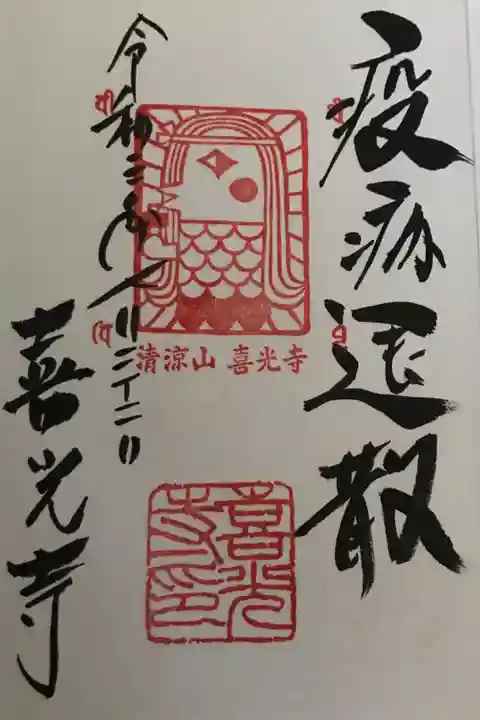 疫病退散
清涼山 喜光寺
喜光
寺印
令和二年八月二十二日
喜光寺